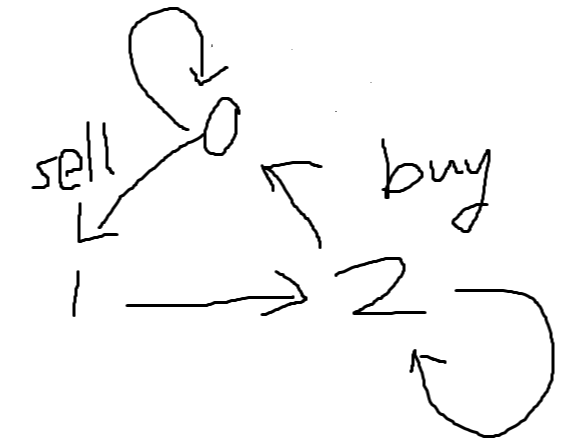 0
sell
buy
1
2